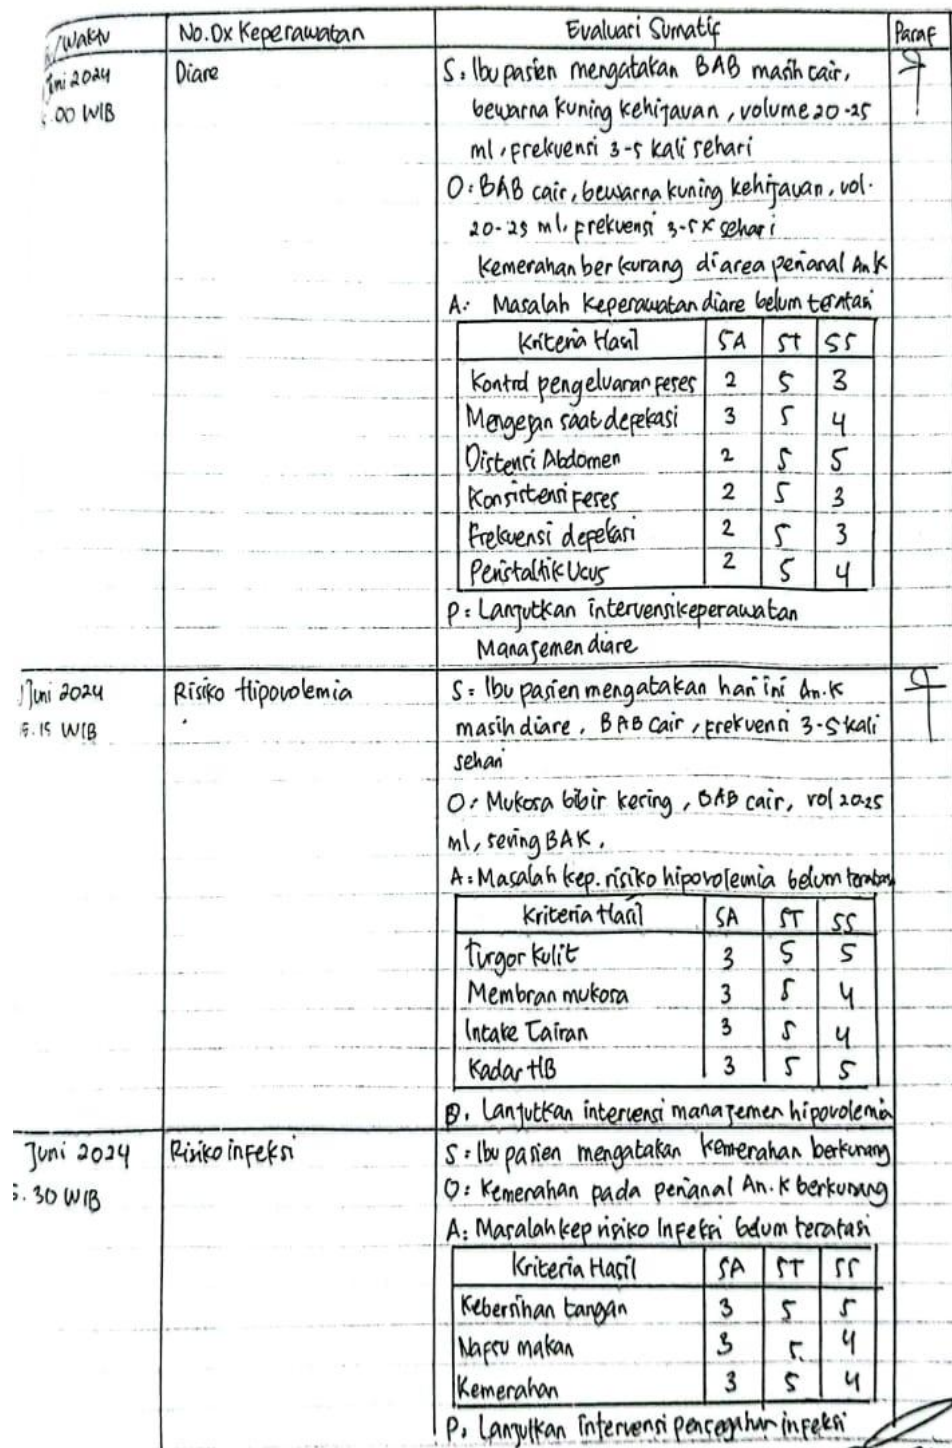 /Waktu No. Dx Keperawatan Evaluasi Sumatif Paraf
Juni 2024 Diare S: Ibu pasien mengatakan BAB masih cair,
.00 WIB bewarna kuning kehijauan, volume 20-25
ml, frekuensi 3-5 kali sehari
O: BAB cair, bewarna kuning kehijauan, vol.
20-25 ml, frekuensi 3-5x sehari
Kemerahan berkurang diarea perianal An K
A: Masalah keperawatan diare belum teratasi
Kriteria Hasil SA ST SS
Kontrol pengeluaran feses 2 5 3
Mengejan saat defekasi 3 5 4
Distensi Abdomen 2 5 5
Konsistensi feses 2 5 3
Frekuensi defekasi 2 5 3
Peristaltik Usus 2 5 4
P: Lanjutkan intervensi keperawatan
Manajemen diare
Juni 2024 Risiko Hipovolemia S: Ibu pasien mengatakan hari ini An.K
.15 WIB masih diare, BAB cair, frekuensi 3-5 kali
sehari
O: Mukosa bibir kering, BAB cair, vol 20-25
ml, sering BAK.
A: Masalah kep. risiko hipovolemia belum teratasi
Kriteria Hasil SA ST SS
Turgor kulit 3 5 5
Membran mukosa 3 5 4
Intake Cairan 3 5 4
Kadar HB 3 5 5
P. Lanjutkan intervensi manajemen hipovolemia
Juni 2024 Risiko infeksi S: Ibu pasien mengatakan kemerahan berkurang
.30 WIB O: Kemerahan pada perianal An. K berkurang
A: Masalah kep risiko Infeksi belum teratasi
Kriteria Hasil SA ST SS
Kebersihan tangan 3 5 5
Nafsu makan 3 5 4
Kemerahan 3 5 4
P. Lanjutkan intervensi pencegahan infeksi